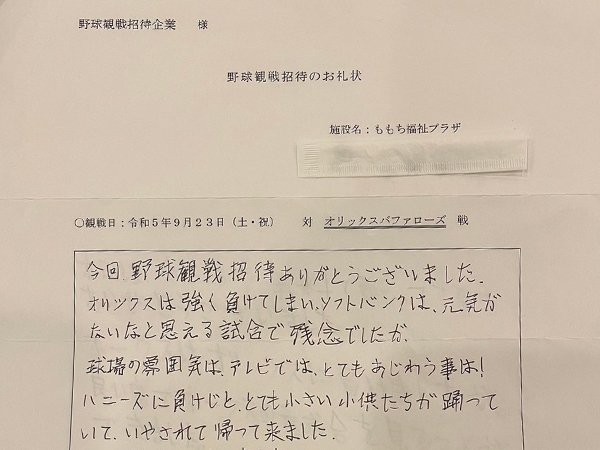 野球観戦招待企業 様
野球観戦招待のお礼状
施設名：ももち福祉プラザ
○観戦日：令和５年９月２３日（土・祝） 対 オリックスバファローズ 戦
今回 野球観戦招待ありがとうございました。
オリックスは強く負けてしまい、ソフトバンクは、元気が
ないなと思える試合で残念でしたが、
球場の雰囲気は、テレビでは、とてもあじわう事は！
ハニーズに負けじと、とても小さい小供たちが踊って
いて、いやされて帰って来ました。